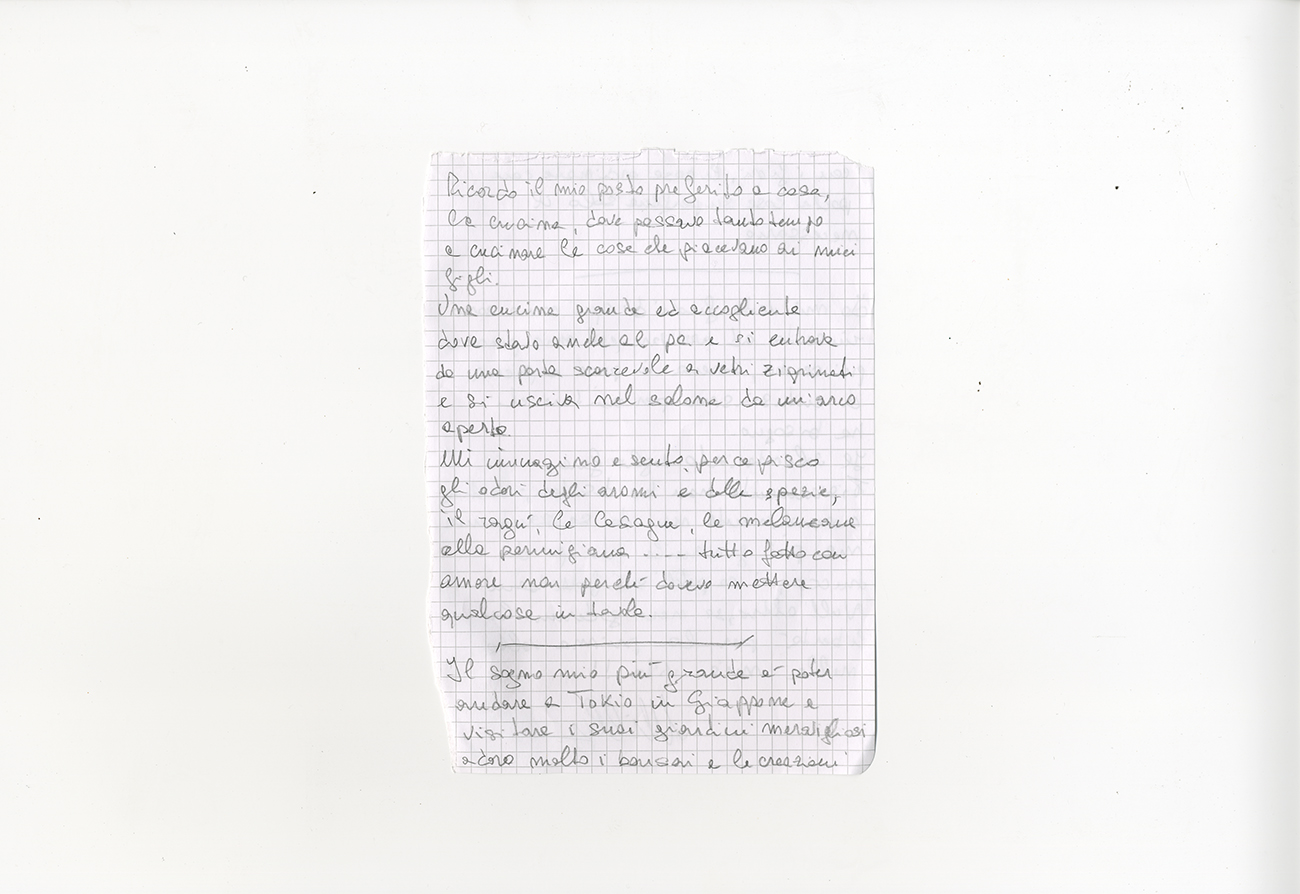 Ricordo il mio posto preferito a casa,
la cucina, dove passavo tanto tempo
a cucinare le cose che piacevano ai miei
figli.
Una cucina grande ed accogliente
dove stavo anche al pc e si entrava
da una porta scorrevole a vetri zigrinati
e si usciva nel salone da un'arco
aperto.
Mi immagino e sento, percepisco
gli odori degli aromi e delle spezie,
il ragù, le lasagne, le melanzane
alla parmigiana .... tutto fatto con
amore non perché dovevo mettere
qualcosa in tavola.
Il sogno mio più grande è poter
andare a Tokio in Giappone e
visitare i suoi giardini meravigliosi
adoro molto i bonsai e le creazioni